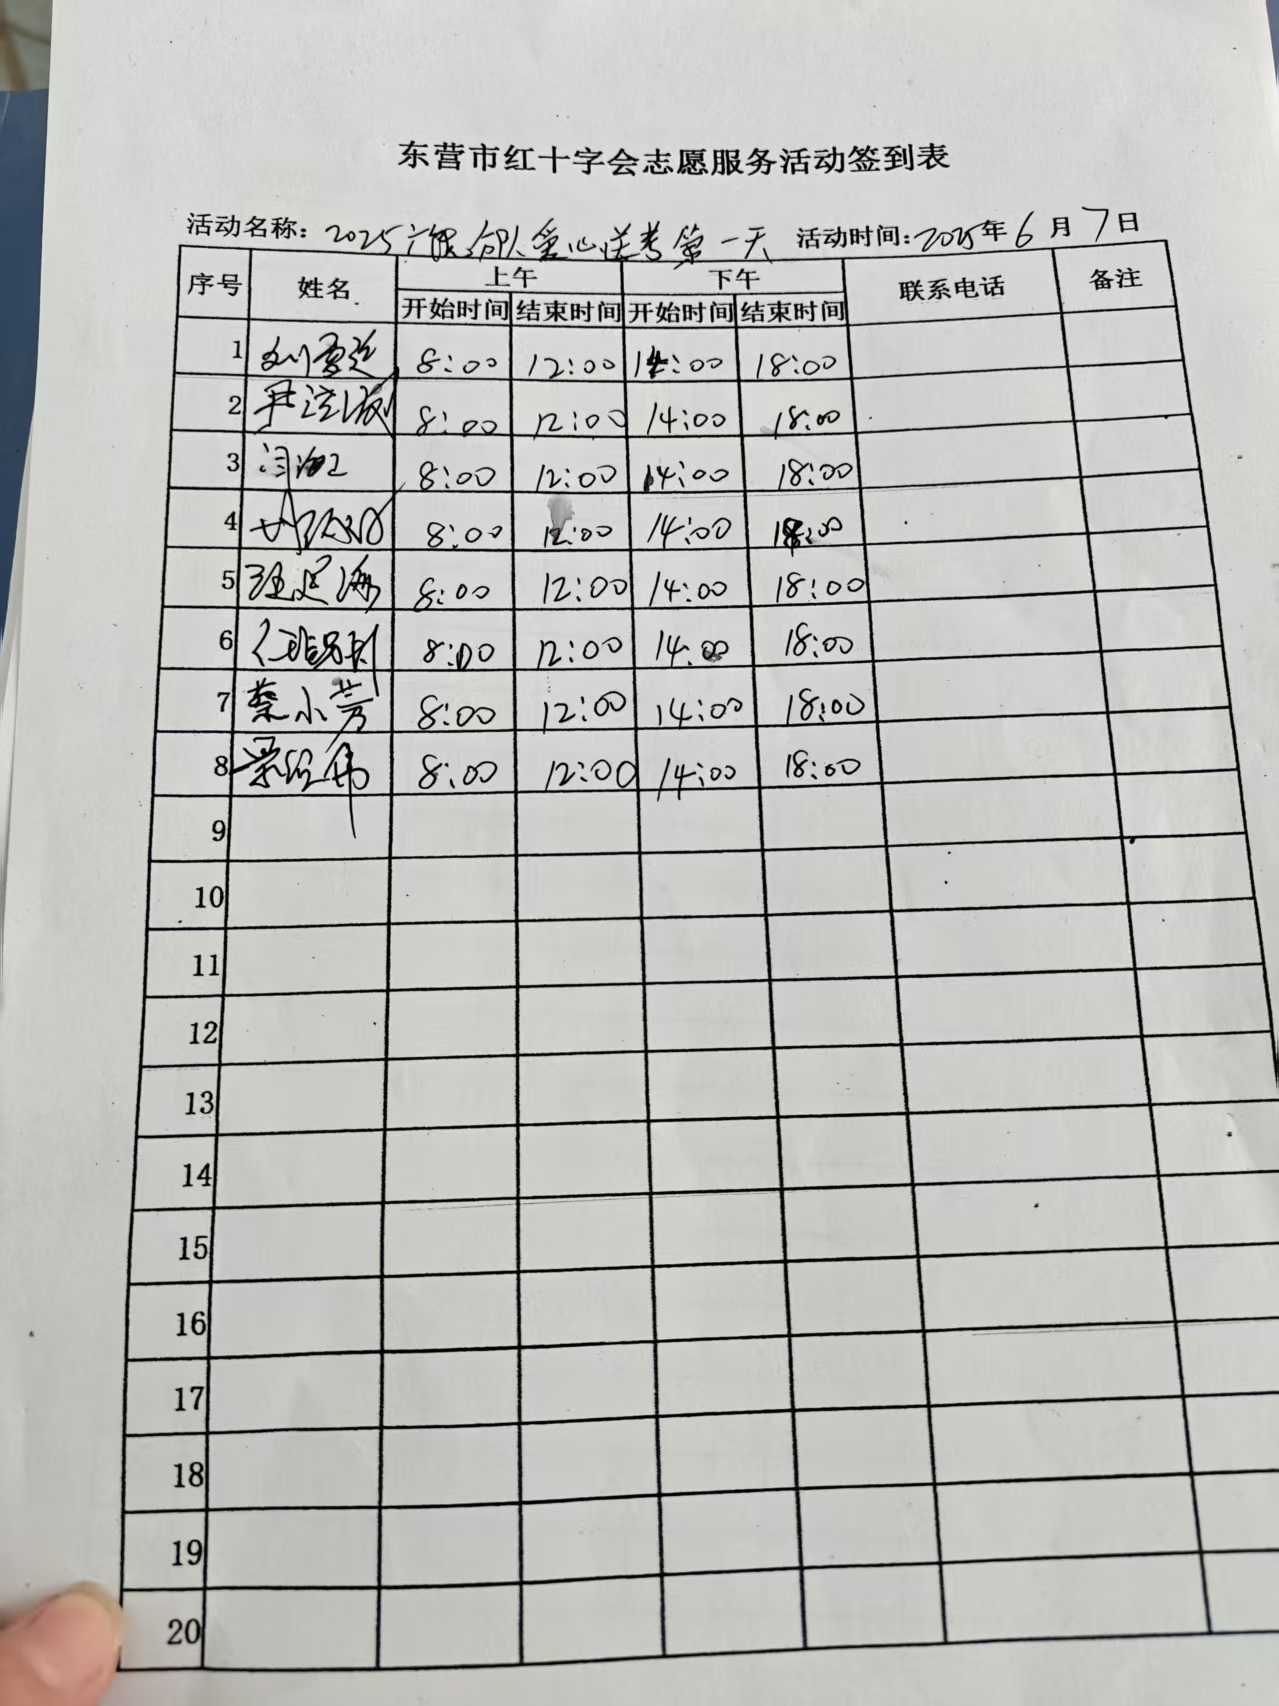 东营市红十字会志愿服务活动签到表
活动名称: 2025 分队爱心送考第一天 活动时间: 2025年6月7日
序号 姓名 上午 下午 联系电话 备注
开始时间 结束时间 开始时间 结束时间
1 8:00 12:00 14:00 18:00
2 8:00 12:00 14:00 18:00
3 8:00 12:00 14:00 18:00
4 8:00 12:00 14:00 18:00
5 8:00 12:00 14:00 18:00
6 8:00 12:00 14:00 18:00
7 蔡小芳 8:00 12:00 14:00 18:00
8 8:00 12:00 14:00 18:00
9
10
11
12
13
14
15
16
17
18
19
20